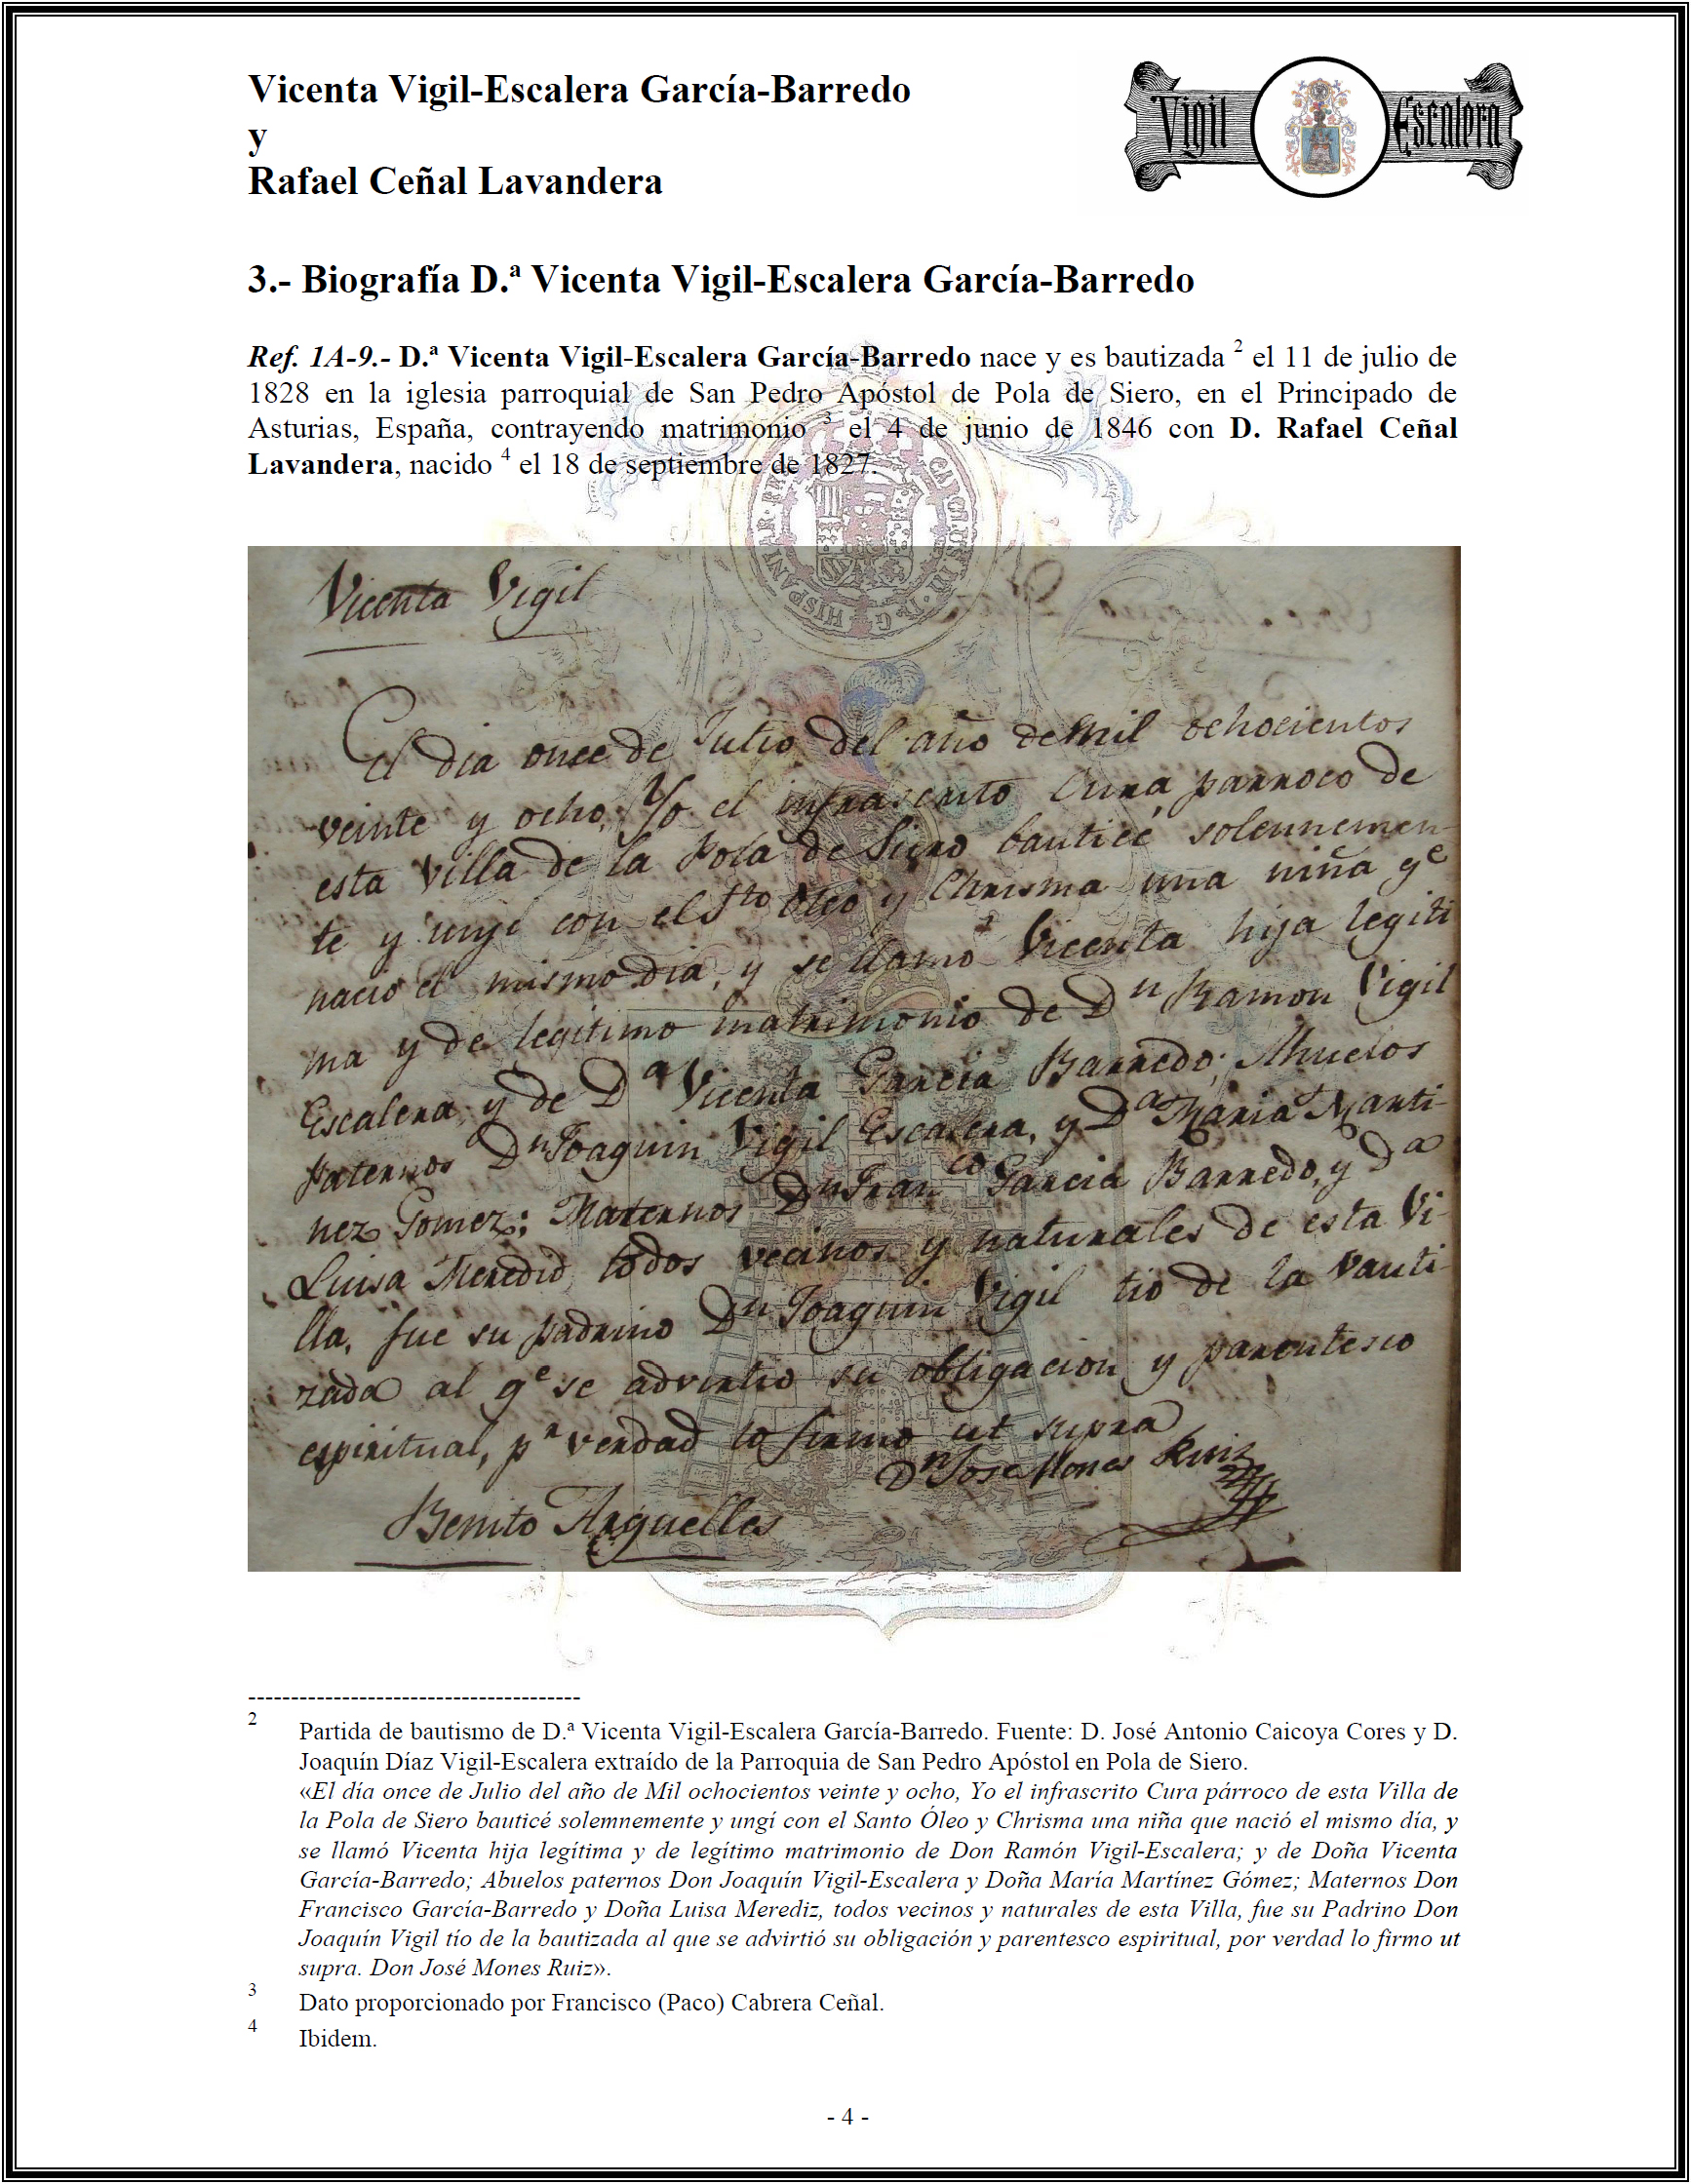 Vicenta Vigil-Escalera García-Barredo
y
Rafael Ceñal Lavandera
Vigil Escalera
3.- Biografía D.ª Vicenta Vigil-Escalera García-Barredo
Ref. 1A-9.- D.ª Vicenta Vigil-Escalera García-Barredo nace y es bautizada 2 el 11 de julio de
1828 en la iglesia parroquial de San Pedro Apóstol de Pola de Siero, en el Principado de
Asturias, España, contrayendo matrimonio 3 el 4 de junio de 1846 con D. Rafael Ceñal
Lavandera, nacido 4 el 18 de septiembre de 1827.
Vicenta Vigil
El dia once de Julio del año de Mil ochocientos
veinte y ocho, Yo el infrascrito Cura parroco de
esta Villa de la Pola de Siero bauticé solennemen
te y unjí con el Sto Oleo y Chrisma una niña qe
nació el mismo dia, y se llamó Vicenta hija legiti
ma y de legitimo matrimonio de Dn Ramon Vigil
Escalera; y de Da Vicenta Garcia Barredo; Abuelos
paternos Dn Joaquin Vigil Escalera, y Da Maria Marti-
nez Gomez; Maternos Dn Franco Garcia Barredo, y Da
Luisa Meredid, todos vecinos y naturales de esta Vi-
lla, fue su padrino Dn Joaquin Vigil tio de la vauti-
zada al qe se advirtió su obligacion y parentesco
espiritual, pr verdad lo firmo ut supra
Dn Jose Mones Ruiz
Benito Arguelles
---------------------------------------
2 Partida de bautismo de D.ª Vicenta Vigil-Escalera García-Barredo. Fuente: D. José Antonio Caicoya Cores y D.
Joaquín Díaz Vigil-Escalera extraído de la Parroquia de San Pedro Apóstol en Pola de Siero.
«El día once de Julio del año de Mil ochocientos veinte y ocho, Yo el infrascrito Cura párroco de esta Villa de
la Pola de Siero bauticé solemnemente y ungí con el Santo Óleo y Chrisma una niña que nació el mismo día, y
se llamó Vicenta hija legítima y de legítimo matrimonio de Don Ramón Vigil-Escalera; y de Doña Vicenta
García-Barredo; Abuelos paternos Don Joaquín Vigil-Escalera y Doña María Martínez Gómez; Maternos Don
Francisco García-Barredo y Doña Luisa Merediz, todos vecinos y naturales de esta Villa, fue su Padrino Don
Joaquín Vigil tío de la bautizada al que se advirtió su obligación y parentesco espiritual, por verdad lo firmo ut
supra. Don José Mones Ruiz».
3 Dato proporcionado por Francisco (Paco) Cabrera Ceñal.
4 Ibidem.
- 4 -